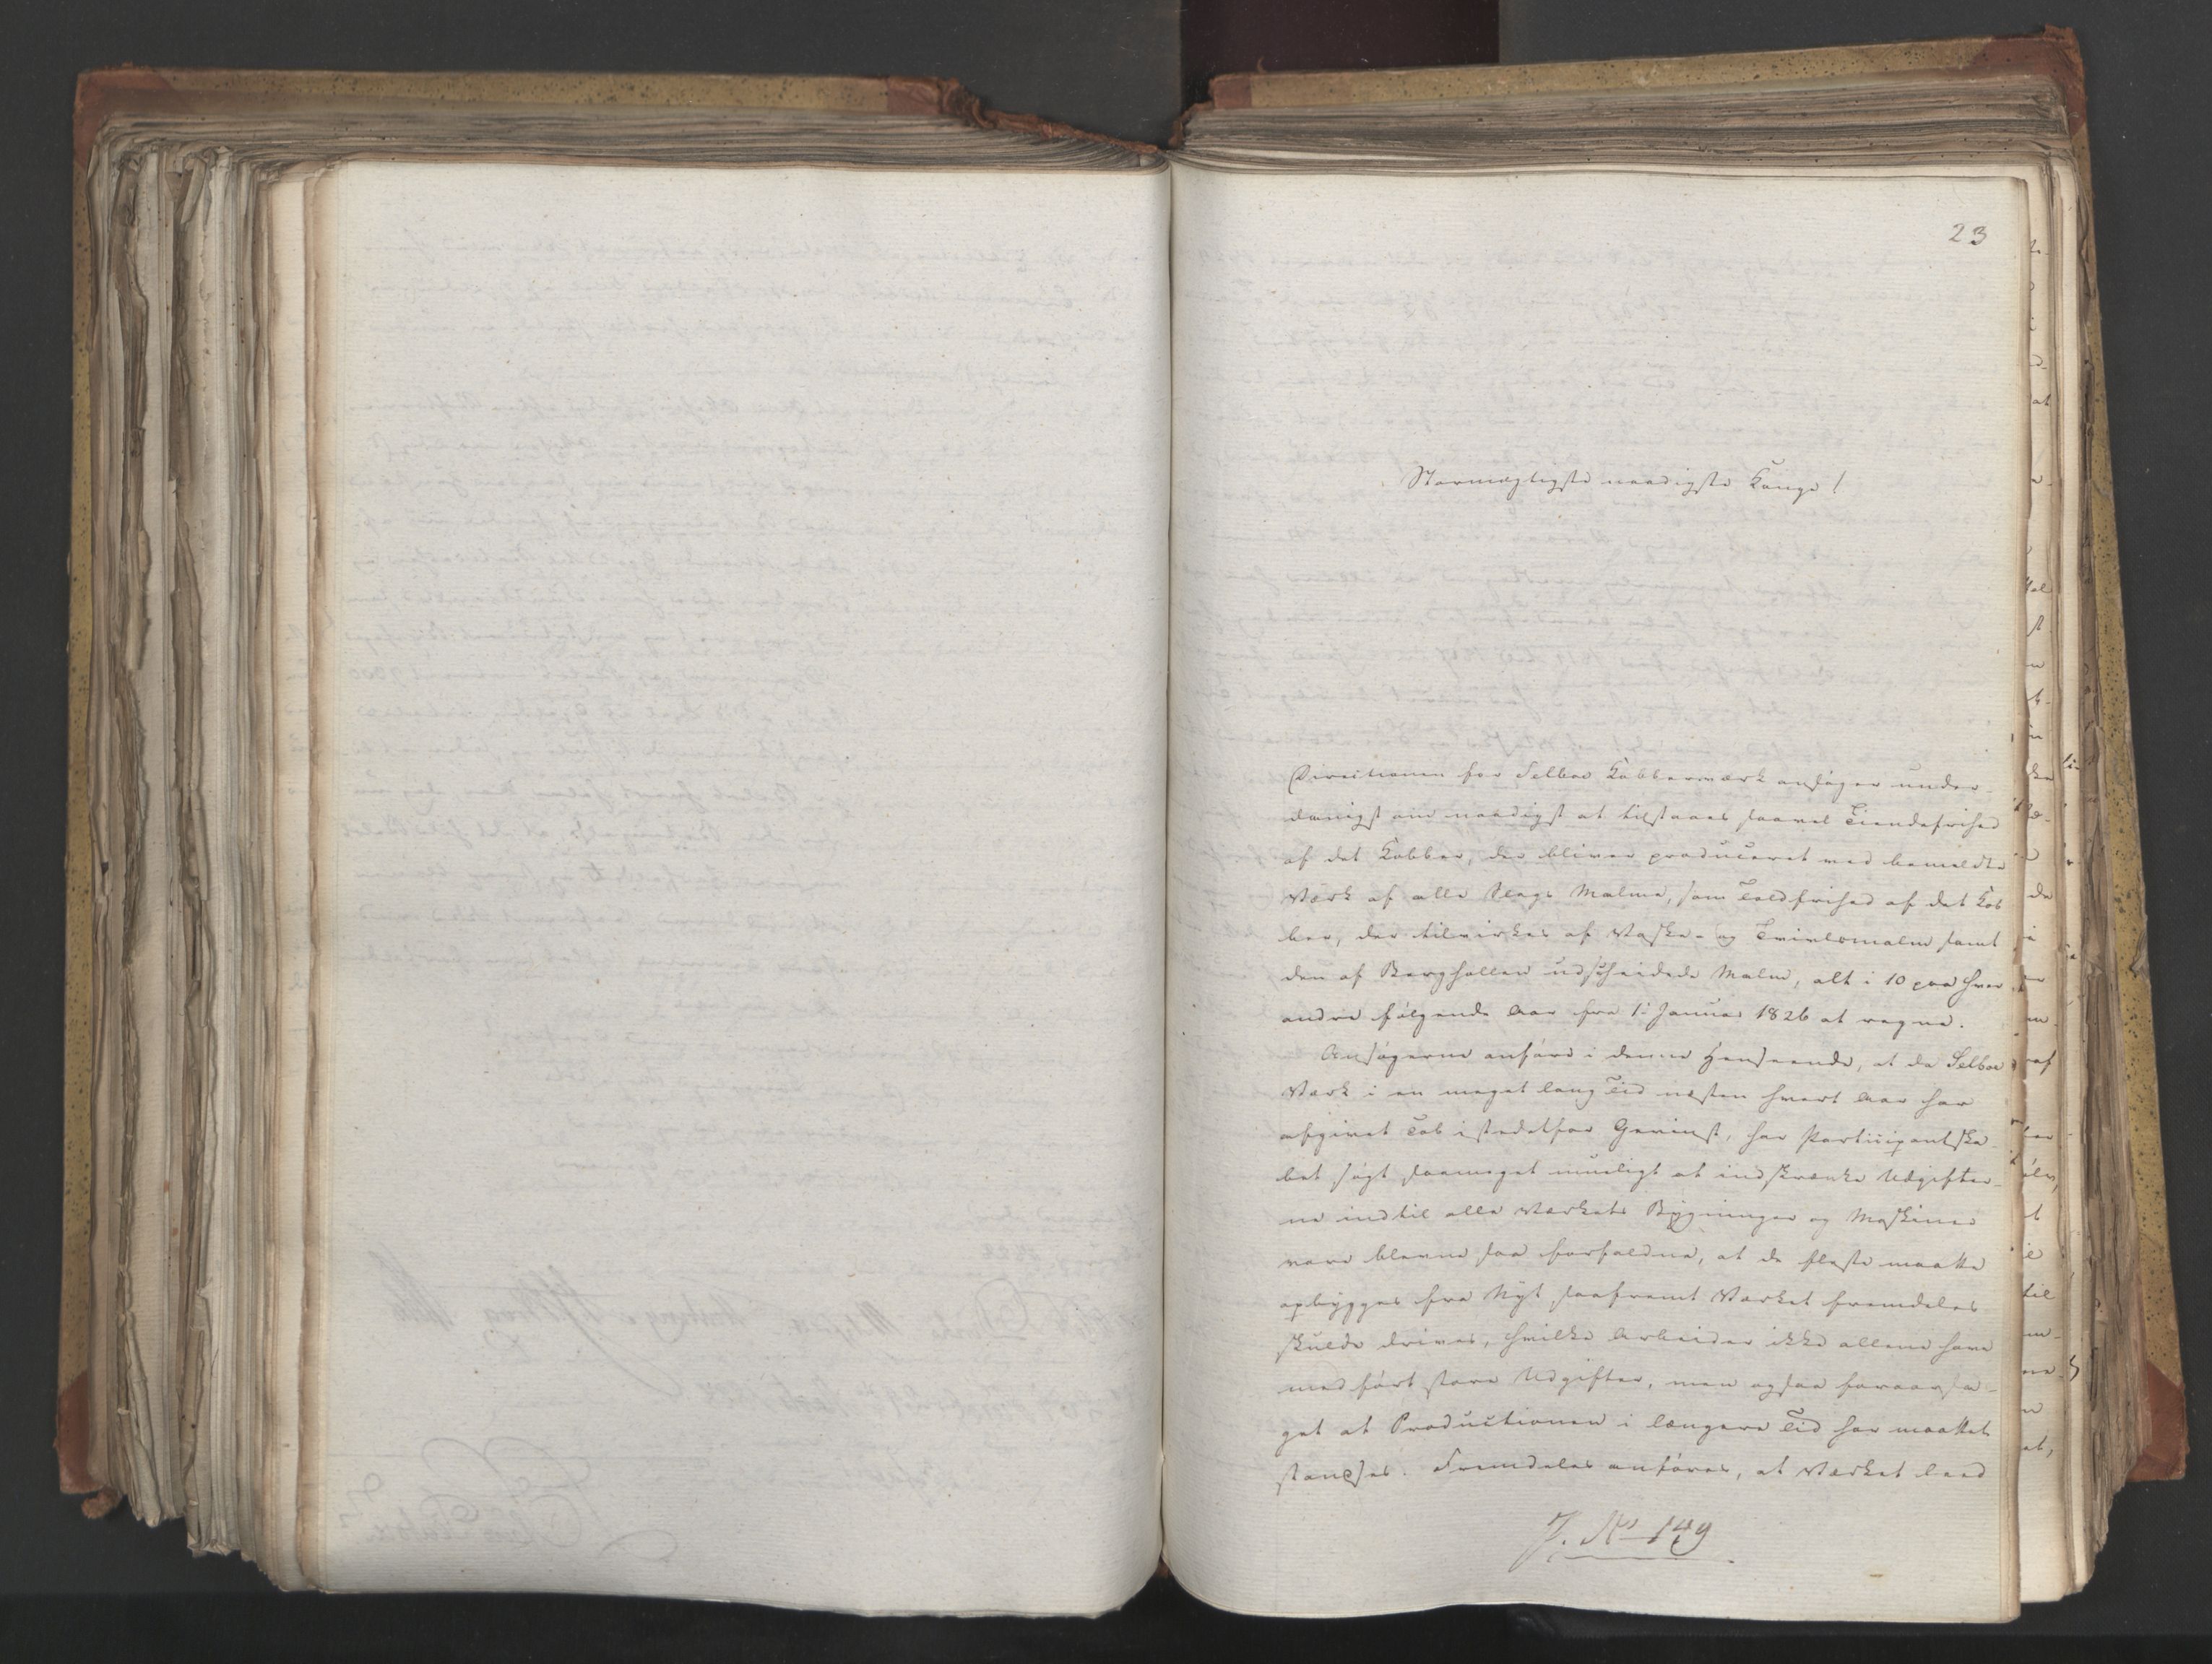 23
Stormægtigste naadigste Konge!
Directionen for Selboe Kobberværk ansøger under-
danigst om naadigst at tilstaaes saavel Tiendefrihed
af det Kobber, der bliver produceret ved bemeldte
Værk af alle Slags Malme, som Toldfrihed af det Kob
ber, der tilvirkes af Vaske- og Tvivlsmalm samt
den af Berghallen udscheidede Malm, alt i 10 paa hver
andre følgende Aar fra 1ste Januar 1826 at regne.
Ansøgerne anføre i denne Henseende, at da Selboe
Værk i en meget lang Tid næsten hvert Aar har
afgivet Tab istedetfor Gevinst, har Participantska
bet søgt saameget mueligt at indskrænke Udgifter-
ne indtil alle Værkets Bygninger og Maskiner
vare blevne saa forfaldne, at de fleste maatte
opbygges fra Nyt saafremt Værket fremdeles
skulde drives, hvilke Arbeider ikke allene have
medført store Udgifter, men ogsaa foraarsa-
get at Productionen i længere Tid har maattet
standses. Fremdeles anføres, at Værket leed
J. No 149